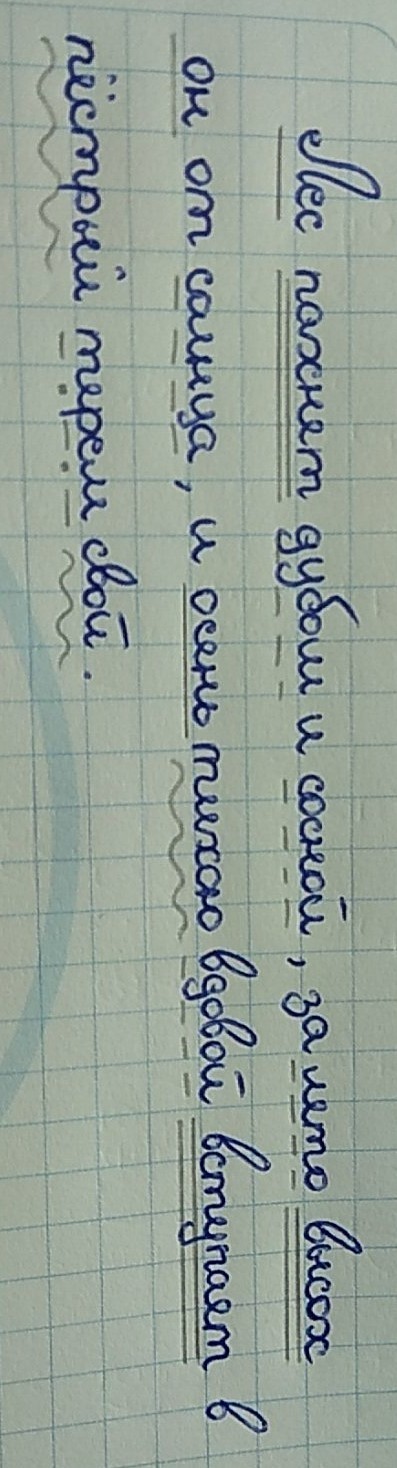 Лес пахнет дубом и сосной, за лето высох
он от солнца, и осень тихою вдовой вступает в
пёстрый терем свой.